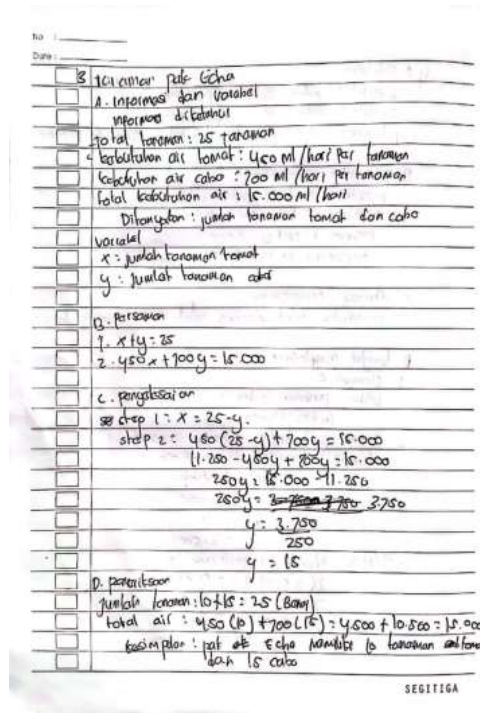 No :
Date :
3 pak Echa
A. Informasi dan variabel
informasi diketahui
total tanaman : 25 tanaman
kebutuhan air tomat : 450 ml /hari per tanaman
kebutuhan air cabo : 700 ml /hari per tanaman
total kebutuhan air : 15.000 ml /hari
Ditanyakan : jumlah tanaman tomat dan cabo
variabel
x = jumlah tanaman tomat
y : jumlah tanaman
B. persamaan
1. x+y = 25
2. 450x + 700y = 15.000
C. penyelesaian
step 1 : x = 25-y.
step 2 : 450 (25 -y) + 700y = 15.000
11.250 - 450y + 700y = 15.000
250y = 15.000 - 11.250
250y = 3.750
y = 3.750
250
y = 15
D. pemeriksaan
jumlah tanaman : 10+15 = 25 (Benar)
total air : 450 (10) + 700 (15) = 4.500 + 10.500 = 15.000
kesimpulan : pak Echa memiliki 10 tanaman
dan 15 cabo
SEGITIGA